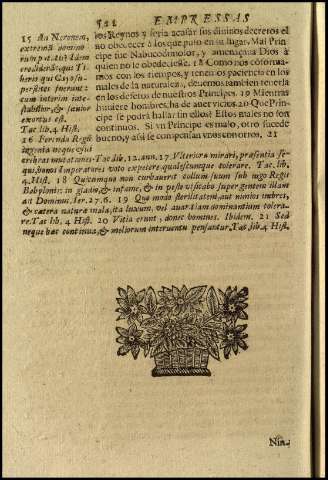 522 EMPRESSAS
vos Reynos y seria acusar sus diuinos decretos el
no obedecer à los que puso en su lugar. Mal Prin-
cipe fue Nabucodonosor, y amenaçaua Dios à
quien no le obedeciesse. 18 Como nos côforma-
mos con los tiempos, y tenemos paciencia en los
males de la naturaleza, deuemos tambien tenerla
en los defetos de nuestros Principes. 19 Mientras
huuiere hombres, ha de auer vicios. 20 Que Prin-
cipe se podrà hallar sin ellos? Ellos males no son
continuos. Si vn Principe es malo, otro sucede
bueno, y assi se compensan vnos con otros. 21
15 An Neronem,
extremũ domino-
rum putatis? Idem
crediderãt, qui Ti-
berio qui Cayo su-
perstites fuerunt:
cum interim inte-
stabilior, & sæuior
exortus est.
Tac. lib. 4. Hist.
16 Ferenda Regũ
ingenia neque vsui
crebras mutationes. Tac. lib. 12. ann. 17 Vlteriora mirari, præsentia se-
qui, bonos Imperatores voto expetere, qualescunque tolerare. Tac. lib.
4. Hist. 18 Quicumque non curbauerit collum suum sub iugo Regis
Babylonis: in gladio, & in fame, & in peste visitabo super gentem illam
ait Dominus. Ier. 27. 6. 19 Quo modo sterilitatem, aut nimios imbres,
& cætera naturæ mala, ita luxum, vel auaritiam dominantium tolera-
re. Tac. lib. 4. Hist. 20 Vitia erunt, donec homines. Ibidem. 21 Sed
neque hæc continua, & meliorum interuentu pensantur. Tac. lib. 4. Hist.
Nin-